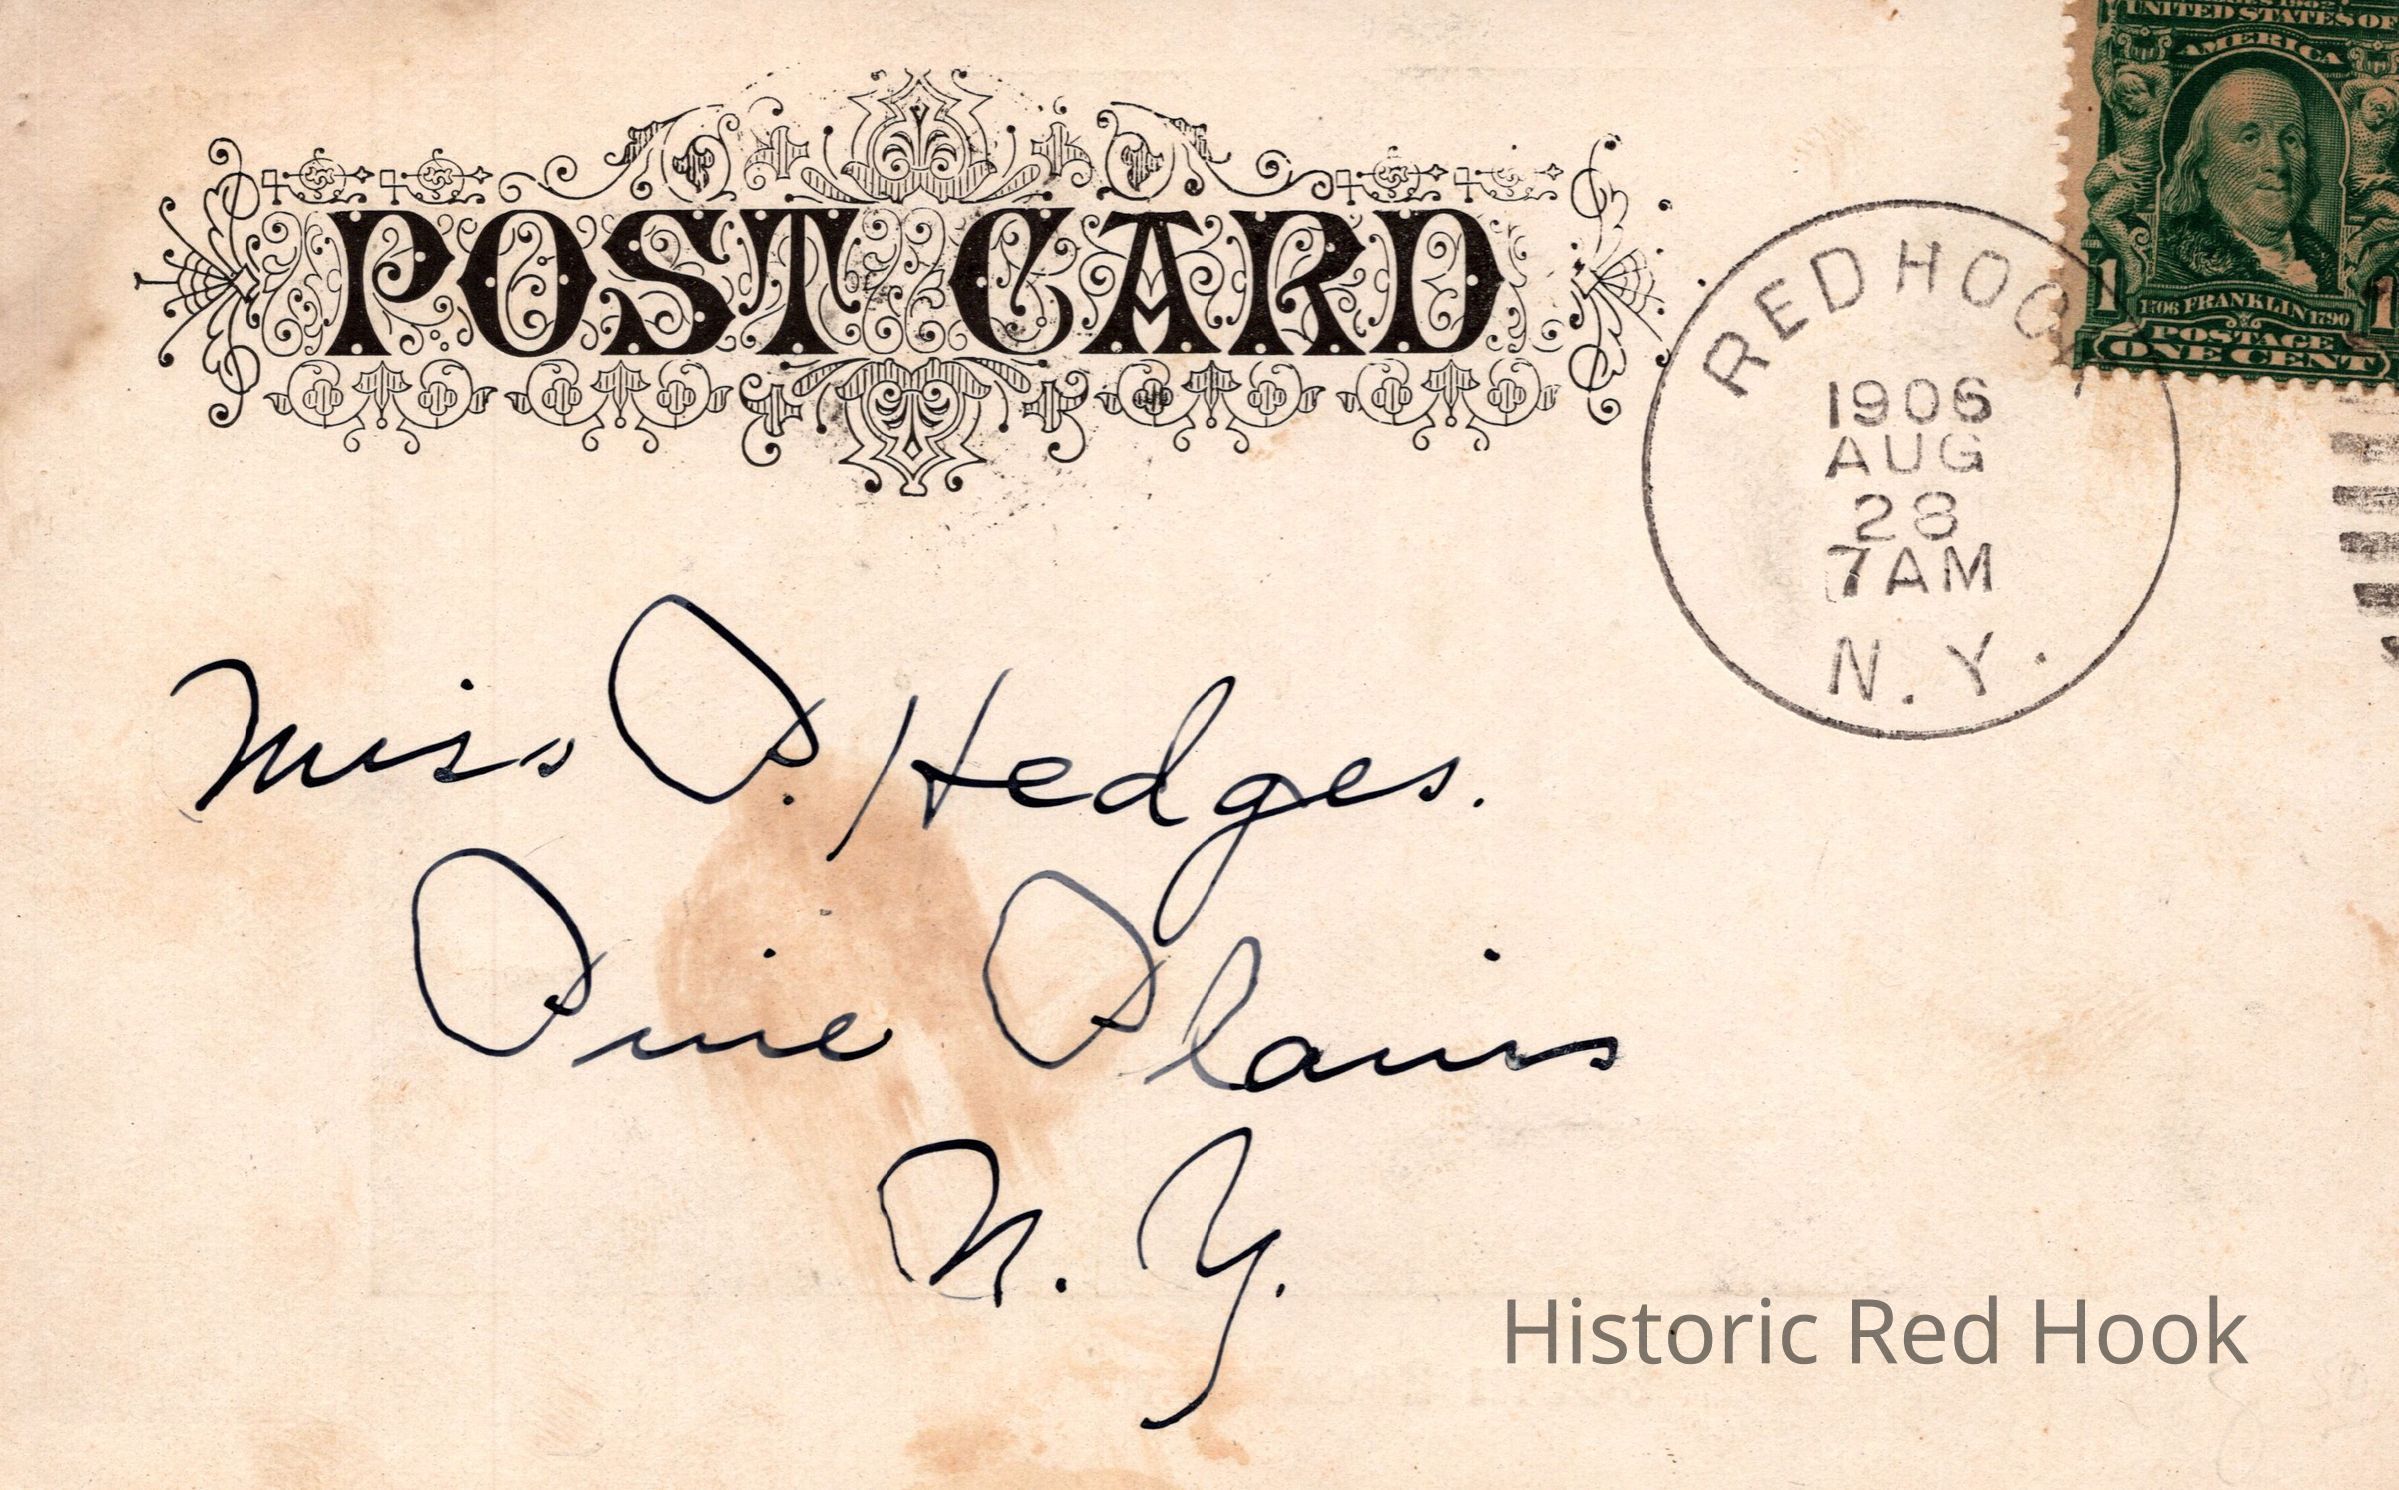 SERIES 1902
UNITED STATES OF
AMERICA
POST CARD
1706 FRANKLIN 1790
1 1
POSTAGE
ONE CENT
RED HOOK
1906
AUG
28
7AM
N.Y.
Miss P. Hedges.
Pine Plains
N. Y.
Historic Red Hook